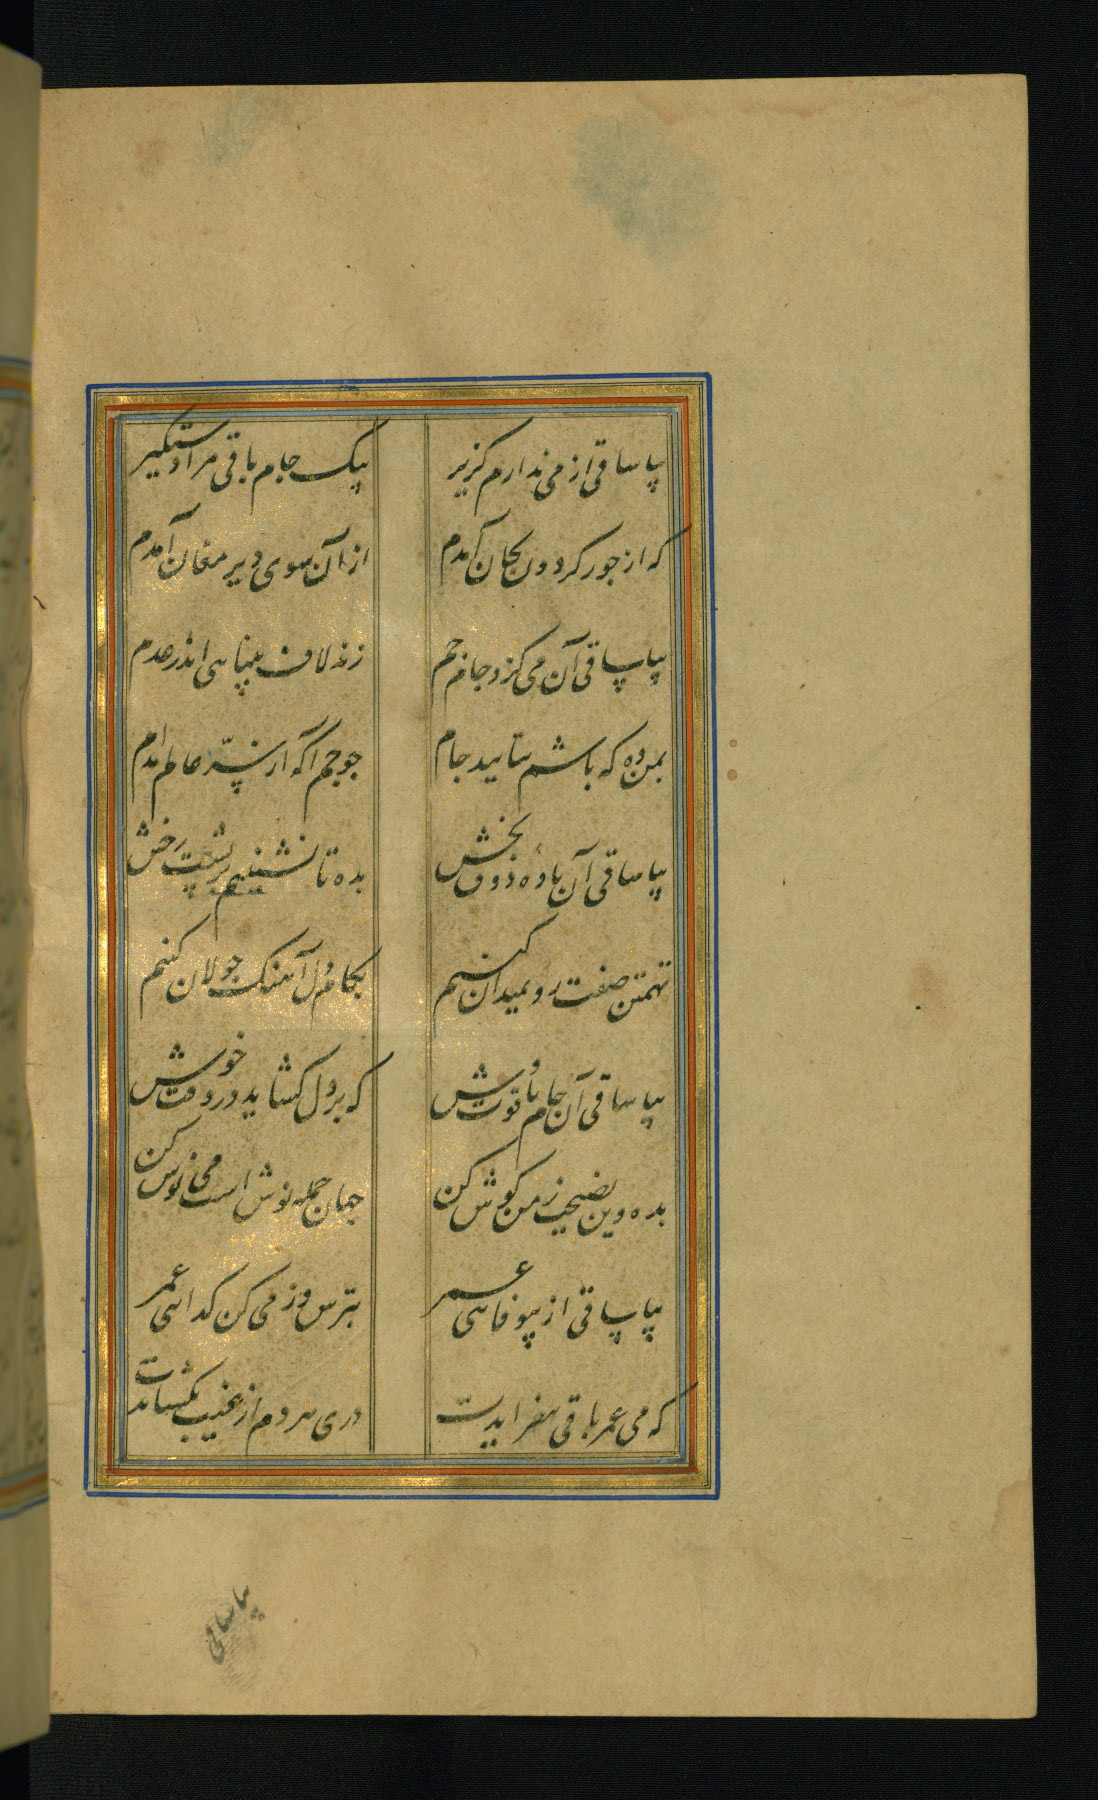 بیا ساقی از می ندارم گزیر بیک جام باقی مرا دستگیر
که از جور گردون بجان آمدم از آن سوی دیر مغان آمدم
بیا ساقی آن می کزو جام جم زند لاف بینایی اندر عدم
بمن ده که باشم بتایید جام چو جم آگه از سرّ عالم مدام
بیا ساقی آن بادهٔ ذوق بخش بده تا نشینیم بر پشت رخش
تهمتن صفت رو بمیدان کنیم بکام دل آهنگ جولان کنیم
بیا ساقی آن جام یاقوت وش که بر دل گشاید در وقت خوش
بده وین نصیحت ز من گوش کن جهان جمله نوش است می نوش کن
بیا ساقی از بیوفایی عمر بترس وز می کن گدایی عمر
که می عمر باقی بیفزایدت دری هر دم از غیب بگشایدت
بیا ساقی